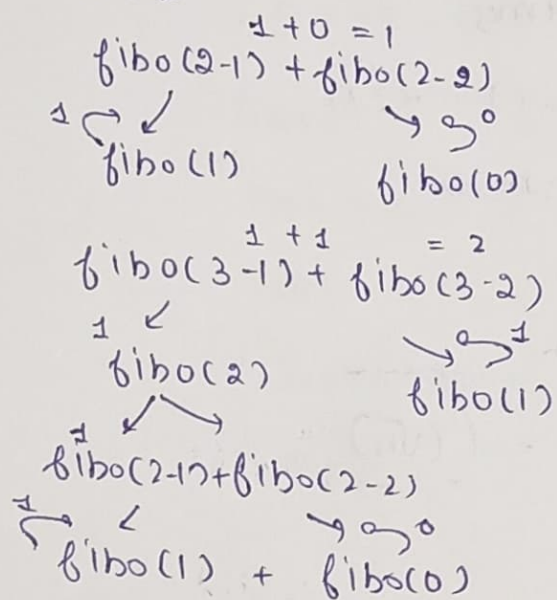 1 + 0 = 1
fibo(2-1) + fibo(2-2)
1 0
fibo(1) fibo(0)
1 + 1 = 2
fibo(3-1) + fibo(3-2)
1 1
fibo(2) fibo(1)
1
fibo(2-1)+fibo(2-2)
1 0
fibo(1) + fibo(0)